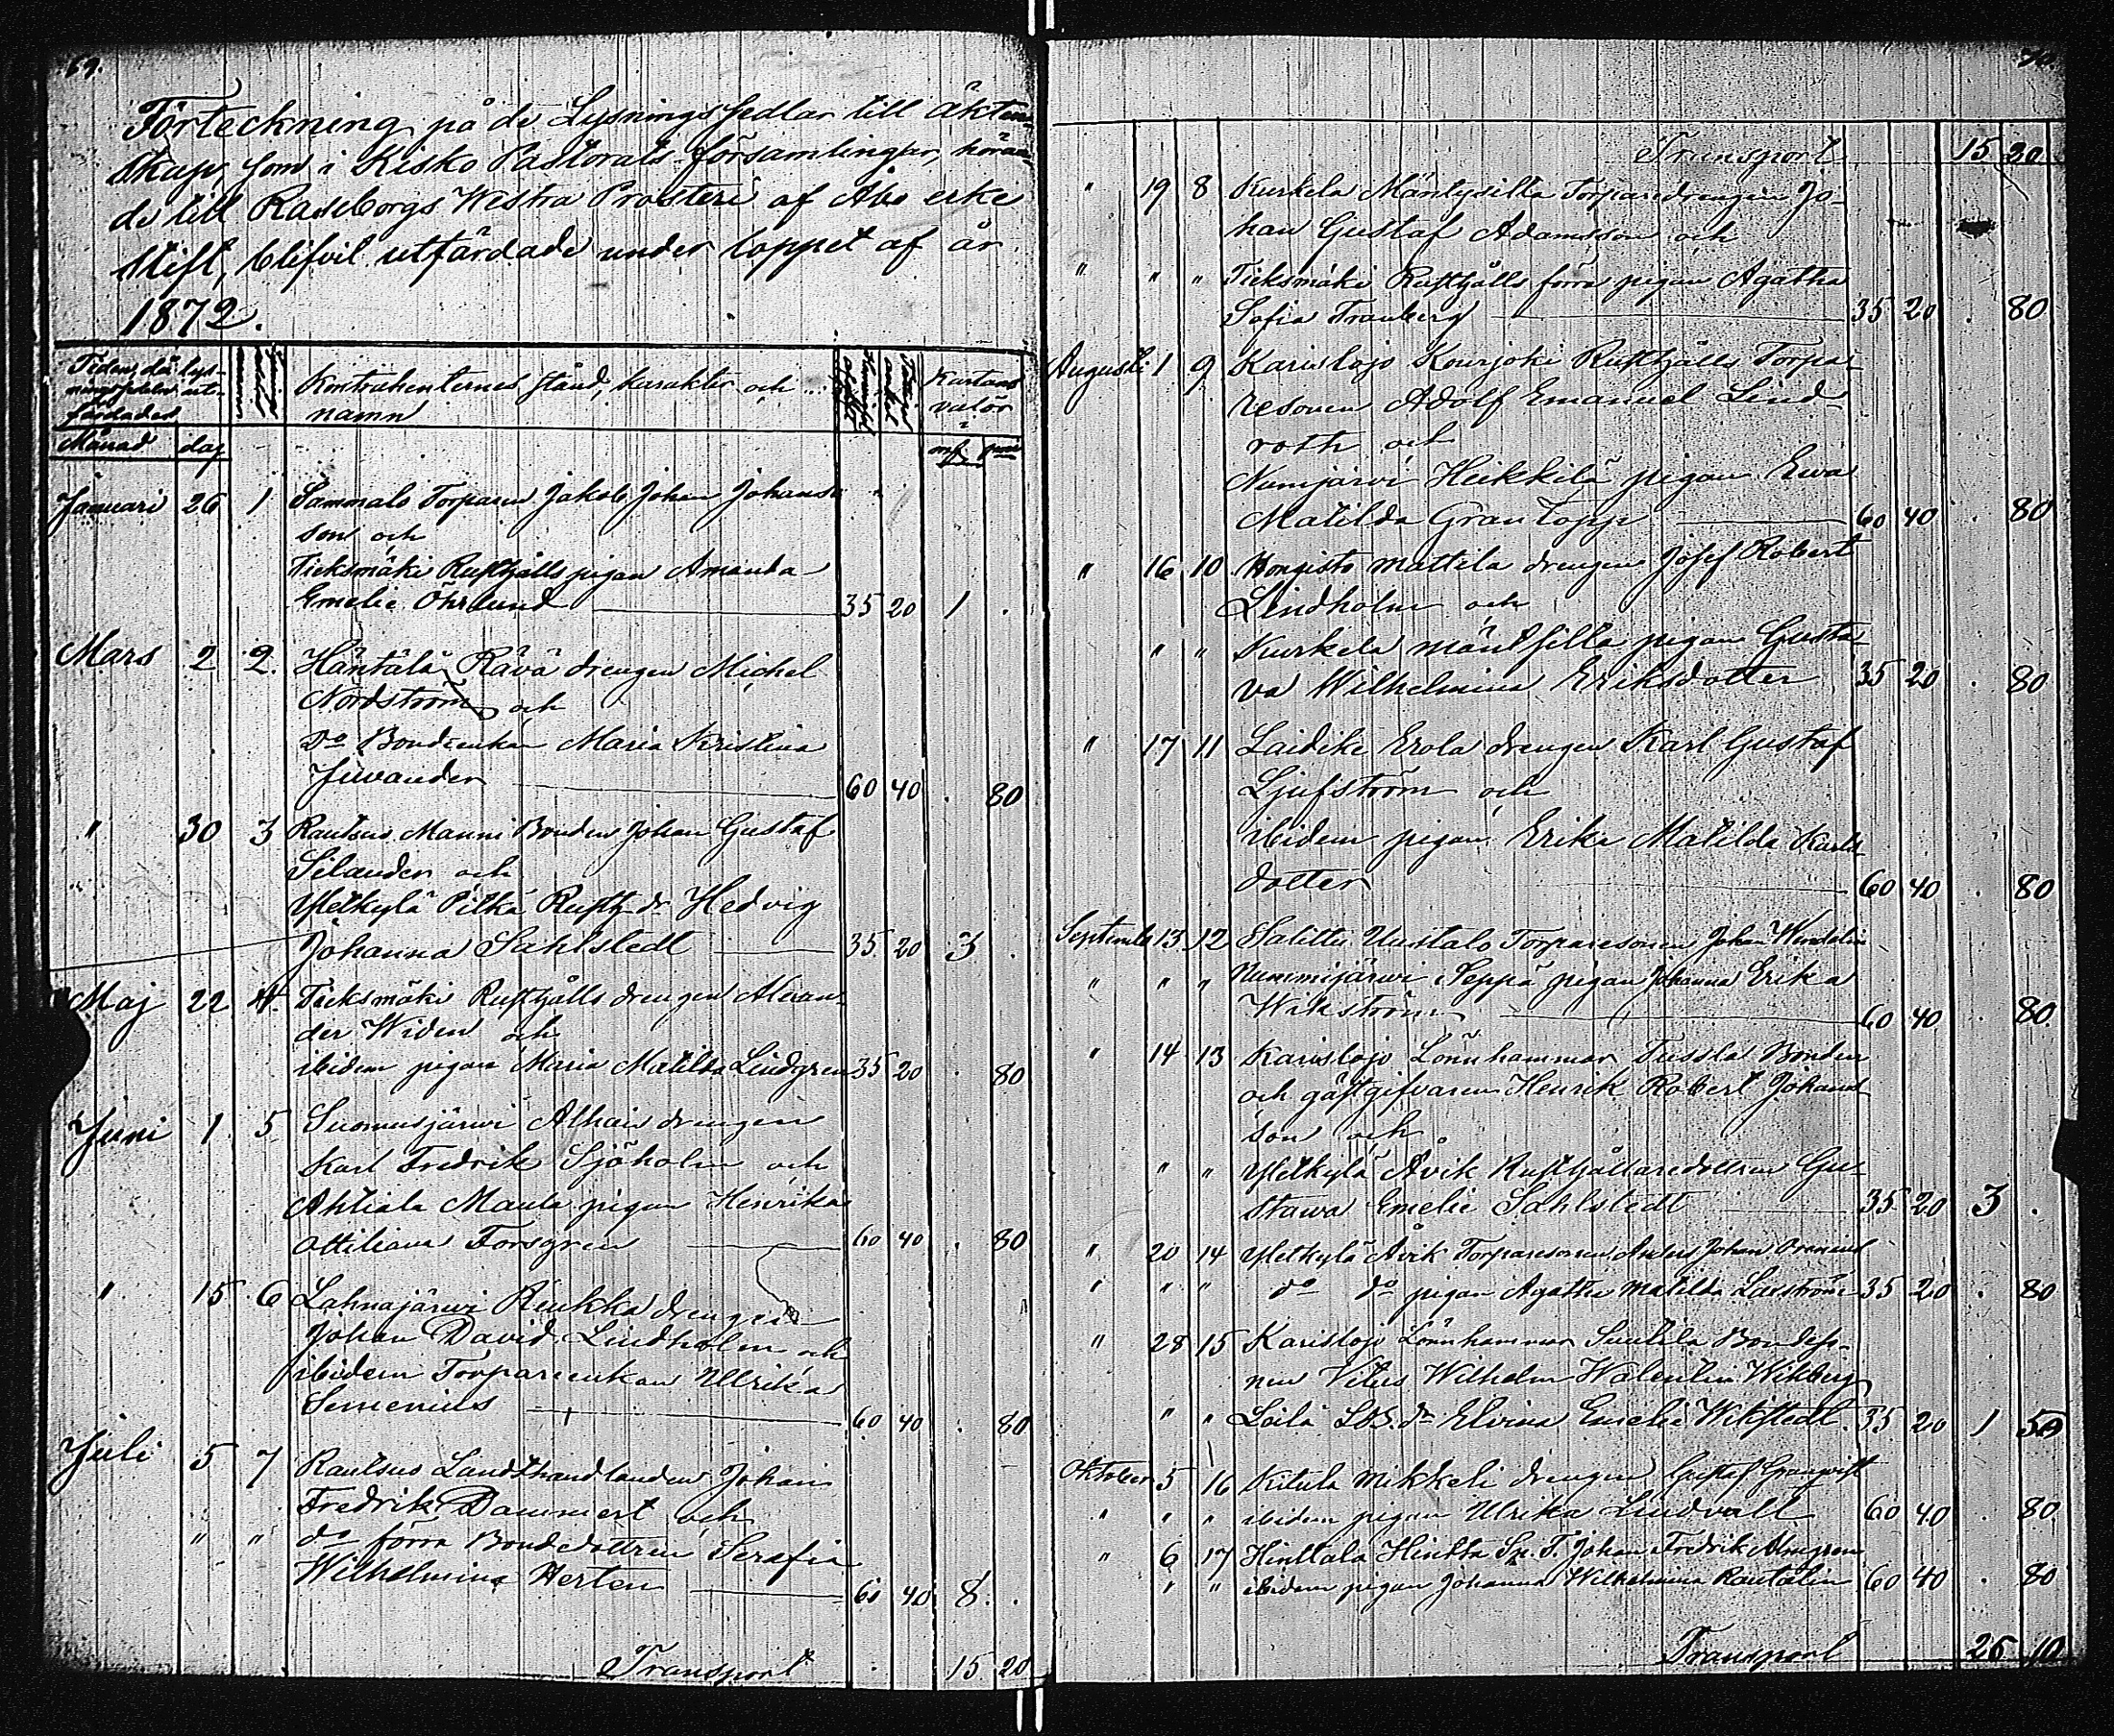 69.
Förteckning på de Lysningssedlar till äkten-
skap, som i Kisko Pastorats församlingar, höran-
de till Raseborgs Westra Prosteri af Åbo erke
stift, blifvit utfärdade under loppet af år
1872.
Tiden, då lys-
ningssedeln ut-
färdades
Månad dag
Kontrahenternes stånd, karakter och
namn
Kartans
valör
mk pni
Januari 26 1 Sammalo Torparen Jakob Johan Johans-
son och
Ticksmäki Rusthålls pigan Amanda
Emelie Öhrlund 35 20 1 .
Mars 2 2. Häntälä Rävä drengen Michel
Nordström och
do Bondeenkan Maria Kristina
Juvander 60 40 . 80
" 30 3 Rautsuo Manni Bonden Johan Gustaf
Silander och
Yletkylä Pitkä Rusth. dr Hedvig
Johanna Sahlstedt 35 20 3 .
Maj 22 4. Ticksmäki Rusthålls drengen Alexan-
der Widen och
ibidem pigan Maria Matilda Lindgren 35 20 . 80
Juni 1 5 Suomusjärvi Alhais drengen
Karl Fredrik Sjöholm och
Ahtiala Maula pigan Henrika
Ottiliana Forsgren 60 40 . 80
" 15 6 Lahnajärvi Riukka drengen
Johan David Lindholm och
ibidem Torpareenkan Ulrika
Semenius 60 40 . 80
Juli 5 7 Rautsuo Landthandlanden Johan
Fredrik Dammert och
" " do förra Bondedottren Serafia
Wilhelmina Herten 60 40 8 .
Transport 15 20
70
Transport 15 20
" 19 8 Kurkela Mäntysilta Torparedrengen Jo-
han Gustaf Adamsson och
" " " Ticksmäki Rusthålls förra pigan Agatha
Sofia Tranberg 35 20 . 80
Augusti 1 9 Karislojo Kourjoki Rusthålls Torpa-
resonen Adolf Emanuel Lind-
roth och
Numjärvi Heikkilä pigan Ewa
Matilda Grantopp 60 40 . 80
" 16 10 Hongisto Mattila drengen Josef Robert
Lindholm och
" " Kurkela mäntsilla pigan Gusta-
va Wilhelmina Eriksdotter 35 20 . 80
" 17 11 Laidike Erola drengen Karl Gustaf
Ljufström och
ibidem pigan Erika Matilda Karls-
dotter 60 40 . 80
September 13 12 Salittu Uustalo Torparesonen Johan Wendelin
" " " Nummijärvi Seppä pigan Johanna Erika
Wikström 60 40 . 80
" 14 13 Karislojo Lönnhammar Tussla Bonden
och gästgifvaren Henrik Robert Johans-
son och
" " Yletkylä Åvik Rusthållaredottren Gu-
stawa Emelie Sahlstedt 35 20 3 .
" 20 14 Yletkylä Åvik Torparesonen Anders Johan
" " " do do pigan Agatha Matilda Laxström 35 20 . 80
" 28 15 Karislojo Lönnhammar Suutila Bondeso-
nen Vitus Wilhelm Walentin Wikberg
" " Leilä dr Elvina Emelie Wikstedt 35 20 1 50
Oktober 5 16 Kitula Mikkeli drengen Gustaf Granqvist
" " " ibidem pigan Ulrika Lindvall 60 40 . 80
" 6 17 Hinttala Hinttä Johan Fredrik Almgren
" " ibidem pigan Johanna Wilhelmina Rautalin 60 40 . 80
Transport 26 10